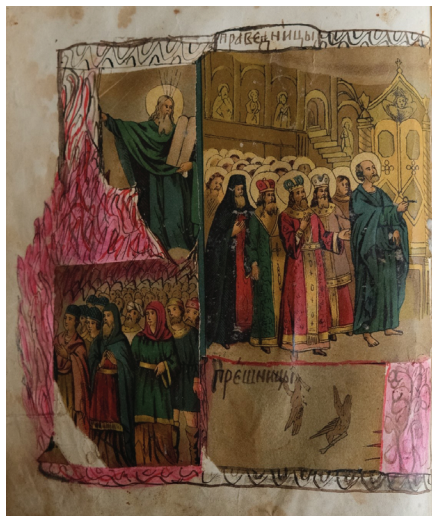 праведницы
грешницы